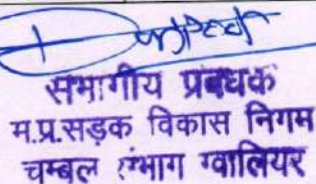 सभागीय प्रबंधक
म.प्र.सड़क विकास निगम
चम्बल संभाग ग्वालियर